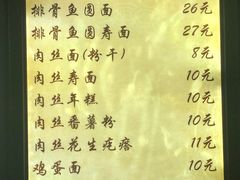 排骨鱼圆面 26元
排骨鱼圆寿面 27元
肉丝面(粉干) 8元
肉丝寿面 10元
肉丝年糕 10元
肉丝番薯粉 10元
肉丝花生疙瘩 11元
鸡蛋面 10元